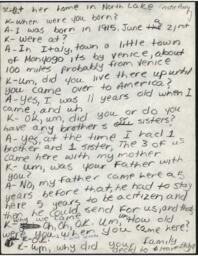 at her home in North Lake
K- when were you born?
A- I was born in 1915, June 2,
K- were at?
A- In, Italy, town a little town
of Monyogo, its by Venice, about
100 miles probably from Venice
K- Um, did you live there up until
you came over to America?
A- Yes, I was 11 years old when I
came, and uh
K- ok, um, did you or do you
have any brothers or sisters?
A- yes, at the time I had 1
brother and 1 sister, The 3 of us
came here with my mother
K- um, was your Father with
you?
A- No, my Father came here a 5
years before that, he had to stay
here 5 years to be a citizen and
then he could send for us, and that
we came
K- Oh, Ok, um, How old
were you when you came here?
K- Ok.
K- um, why did your family